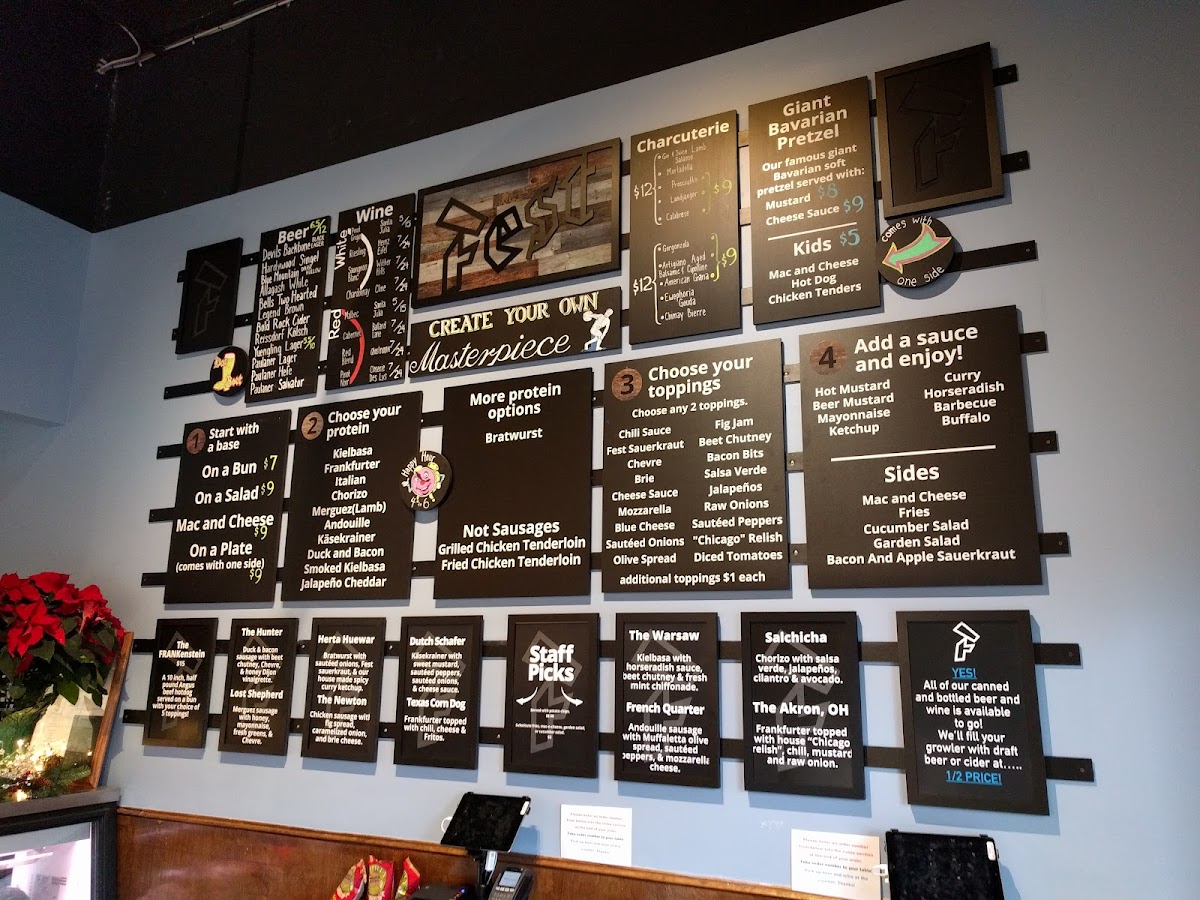 Beer 6.5/12
Devils Backbone BLACK LAGER
Hardywood Singel
Blue Mountain
Allagash White
Bells Two Hearted
Legend Brown
Bold Rock Cider
Reissdorf Kölsch
Yuengling Lager 3.5/10
Paulaner Lager
Paulaner Hefe
Paulaner Salvator
Das Boot
Wine
White
Pinot Grigio
Riesling
Sauvignon Blanc
Chardonnay
Santa Julia 5/15
7/24
7/24
Cline 7/24
Red
Malbec
Cabernet
Red Blend
Pinot Noir
Santa Julia 5/15
7/24
7/24
7/24
Fest
CREATE YOUR OWN
Masterpiece
Charcuterie
$12
Mortadella
Prosciutto
Landjäger
Calabrese
$9
$12
Gorgonzola
Artigiano Aged
Balsamic & Cipolline
American Grana
Ewephoria
Gouda
Chimay Bierre
$9
Giant
Bavarian
Pretzel
Our famous giant
Bavarian soft
pretzel served with:
Mustard $8
Cheese Sauce $9
Kids $5
Mac and Cheese
Hot Dog
Chicken Tenders
comes with
one side
1 Start with
a base
On a Bun $7
On a Salad $9
Mac and Cheese
$9
On a Plate
(comes with one side)
$9
2 Choose your
protein
Kielbasa
Frankfurter
Italian
Chorizo
Merguez(Lamb)
Andouille
Käsekrainer
Duck and Bacon
Smoked Kielbasa
Jalapeño Cheddar
Happy Hour
4-6
More protein
options
Bratwurst
Not Sausages
Grilled Chicken Tenderloin
Fried Chicken Tenderloin
3 Choose your
toppings
Choose any 2 toppings.
Chili Sauce
Fest Sauerkraut
Chevre
Brie
Cheese Sauce
Mozzarella
Blue Cheese
Sautéed Onions
Olive Spread
Fig Jam
Beet Chutney
Bacon Bits
Salsa Verde
Jalapeños
Raw Onions
Sautéed Peppers
"Chicago" Relish
Diced Tomatoes
additional toppings $1 each
4 Add a sauce
and enjoy!
Hot Mustard
Beer Mustard
Mayonnaise
Ketchup
Curry
Horseradish
Barbecue
Buffalo
Sides
Mac and Cheese
Fries
Cucumber Salad
Garden Salad
Bacon And Apple Sauerkraut
The
FRANKenstein
$15
A 19 inch, half
pound Angus
beef hotdog
served on a bun
with your choice of
5 toppings!
The Hunter
Duck & bacon
sausage with beet
chutney, Chevre,
& honey Dijon
vinaigrette.
Lost Shepherd
Merguez sausage
with honey,
mayonnaise,
fresh greens, &
Chevre.
Herta Huewar
Bratwurst with
sautéed onions, Fest
sauerkraut, & our
house made spicy
curry ketchup.
The Newton
Chicken sausage with
fig spread,
caramelized onion,
and brie cheese.
Dutch Schafer
Käsekrainer with
sweet mustard,
sautéed peppers,
sautéed onions,
& cheese sauce.
Texas Corn Dog
Frankfurter topped
with chili, cheese &
Fritos.
Staff
Picks
The Warsaw
Kielbasa with
horseradish sauce,
beet chutney & fresh
mint chiffonade.
French Quarter
Andouille sausage
with Muffaletta olive
spread, sautéed
peppers, & mozzarella
cheese.
Salchicha
Chorizo with salsa
verde, jalapeños,
cilantro & avocado.
The Akron, OH
Frankfurter topped
with house "Chicago
relish", chili, mustard
and raw onion.
YES!
All of our canned
and bottled beer and
wine is available
to go!
We'll fill your
growler with draft
beer or cider at.....
1/2 PRICE!